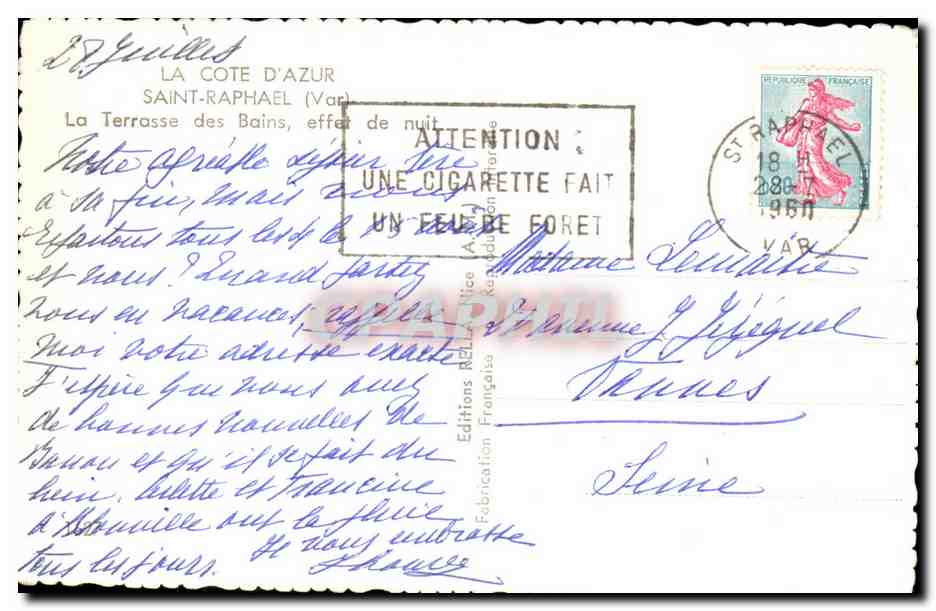 28 Juillet
LA COTE D'AZUR
SAINT-RAPHAEL (Var)
La Terrasse des Bains, effet de nuit
ATTENTION :
UNE CIGARETTE FAIT
UN FEU DE FORET
REPUBLIQUE FRANÇAISE
ST RAPHAEL
18 H
28-7
1960
VAR
Notre agréable séjour tire
à sa fin, mais nous
tous les le 15
et vous ? Quand partez
vous en vacances, rappelez
moi votre adresse exacte
J'espère que vous avez
de bonnes nouvelles de
et qu'il se fait du
bien. Arlette et Francine
à ont la pluie
tous les jours. Je vous embrasse
Editions RELLA, Nice (A.-M.)
Fabrication Française Reproduction Interdite
Madame Lemaitre
Avenue J Jézéquel
Vanves
Seine